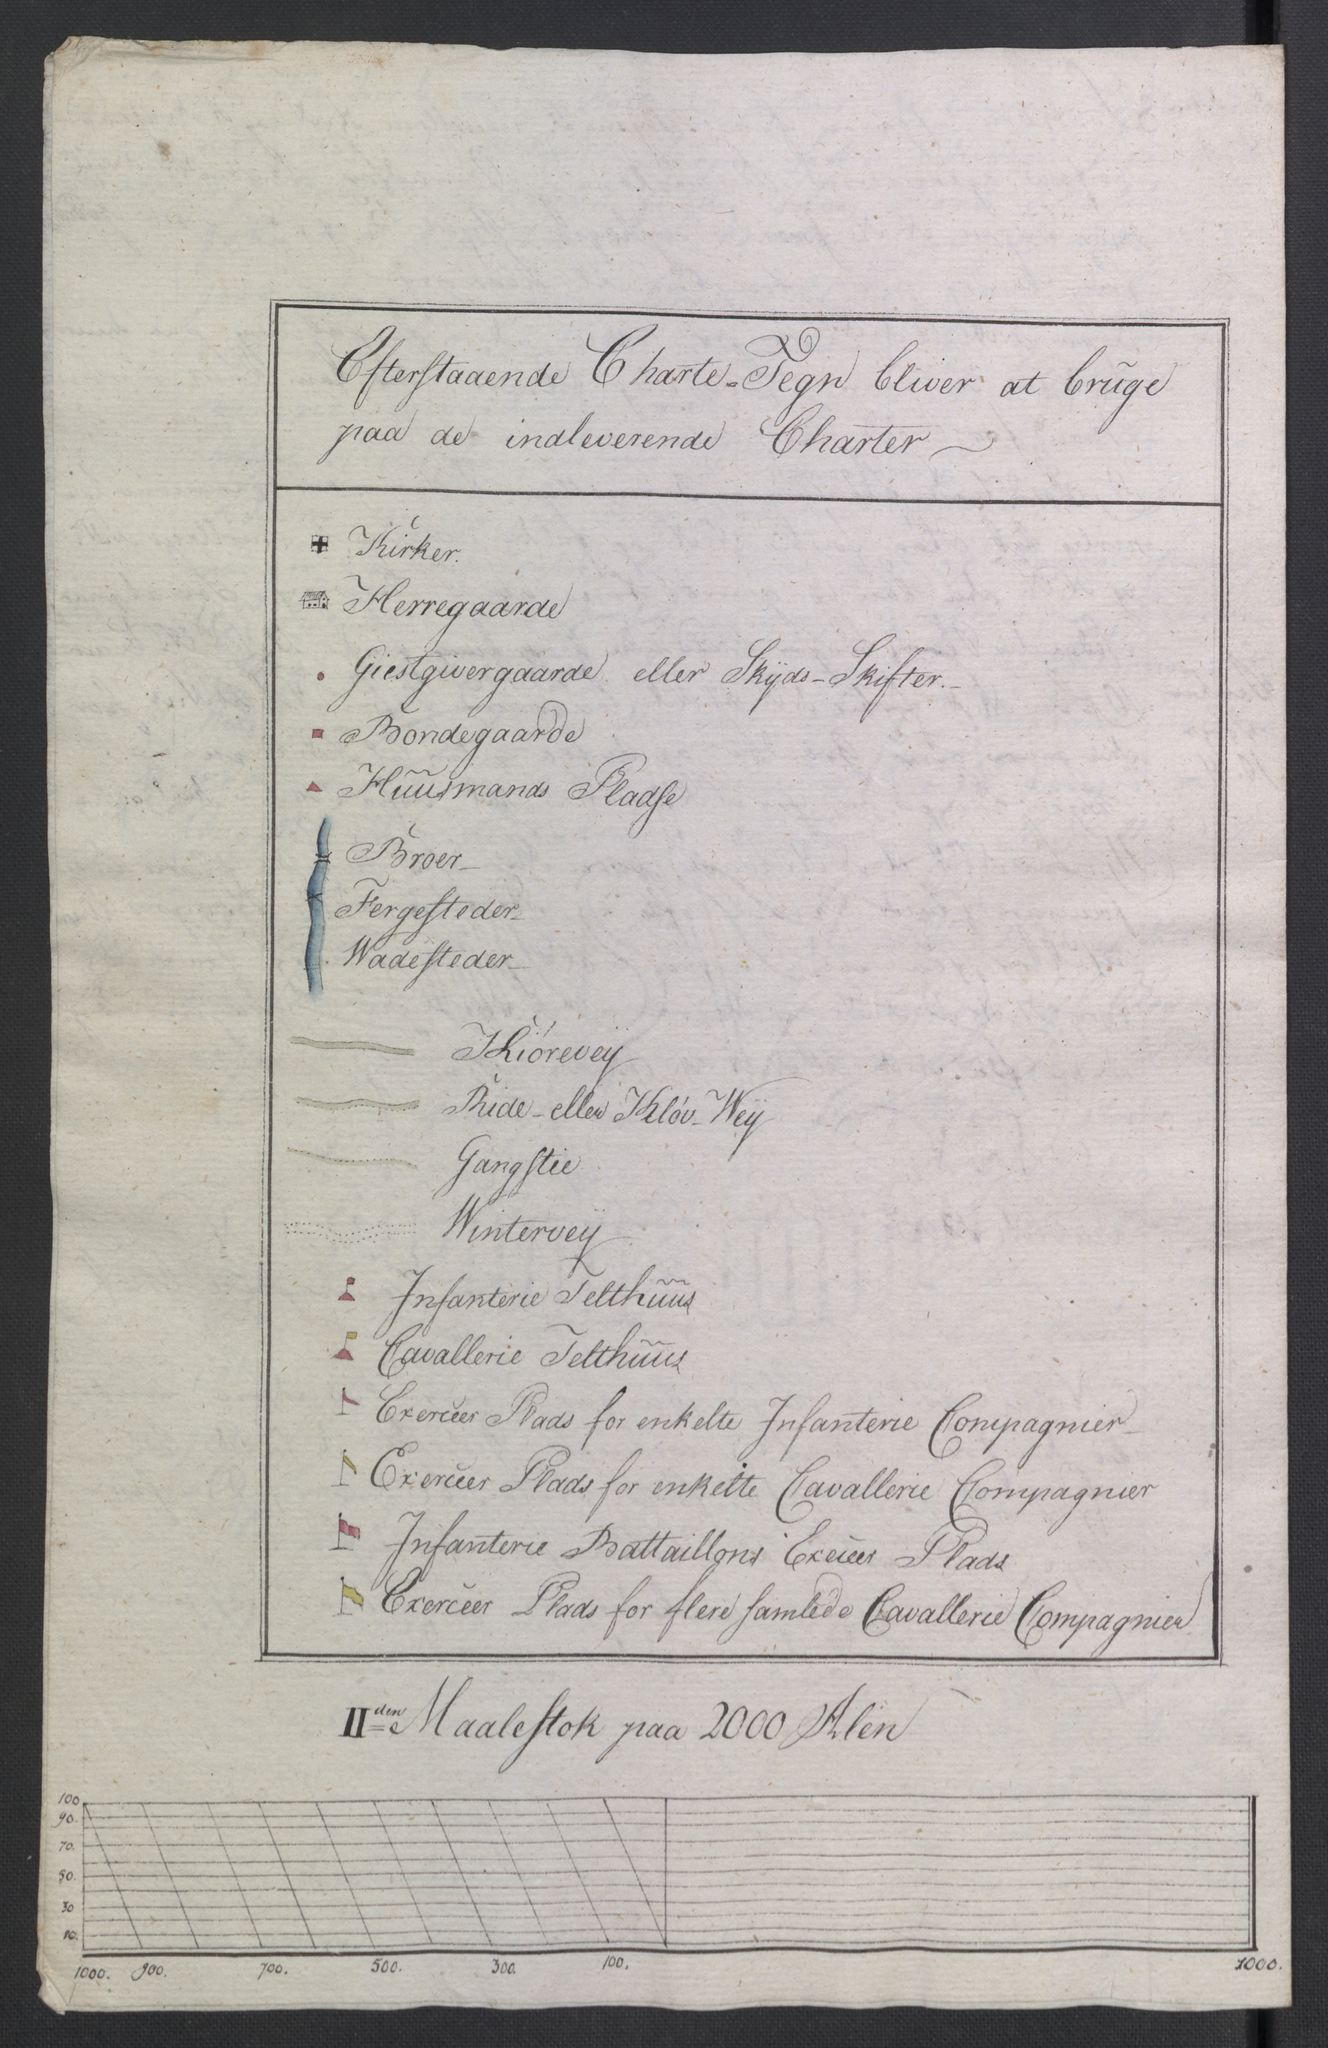 Efterstaaende Charte-Tegn bliver at bruge
paa de indleverende Charter
Kirker.
Herregaarde
Giestgivergaarde eller Skyds-Skifter.
Bondegaarde
Huusmands Pladse
Broer
Fergesteder
Wadesteder
Kiørevey
Ride- eller Kløv-Wey
Gangstie
Wintervey
Infanterie Telthuus
Cavallerie Telthuus
Exerceer Plads for enkelte Infanterie Compagnier
Exerceer Plads for enkelte Cavallerie Compagnier
Infanterie Battaillons Exerceer Plads
Exerceer Plads for flere samlede Cavallerie Compagnier
II den Maalestok paa 2000 Alen
100
90.
70.
50.
30
10.
1000. 900. 700. 500. 300. 100. 1000.